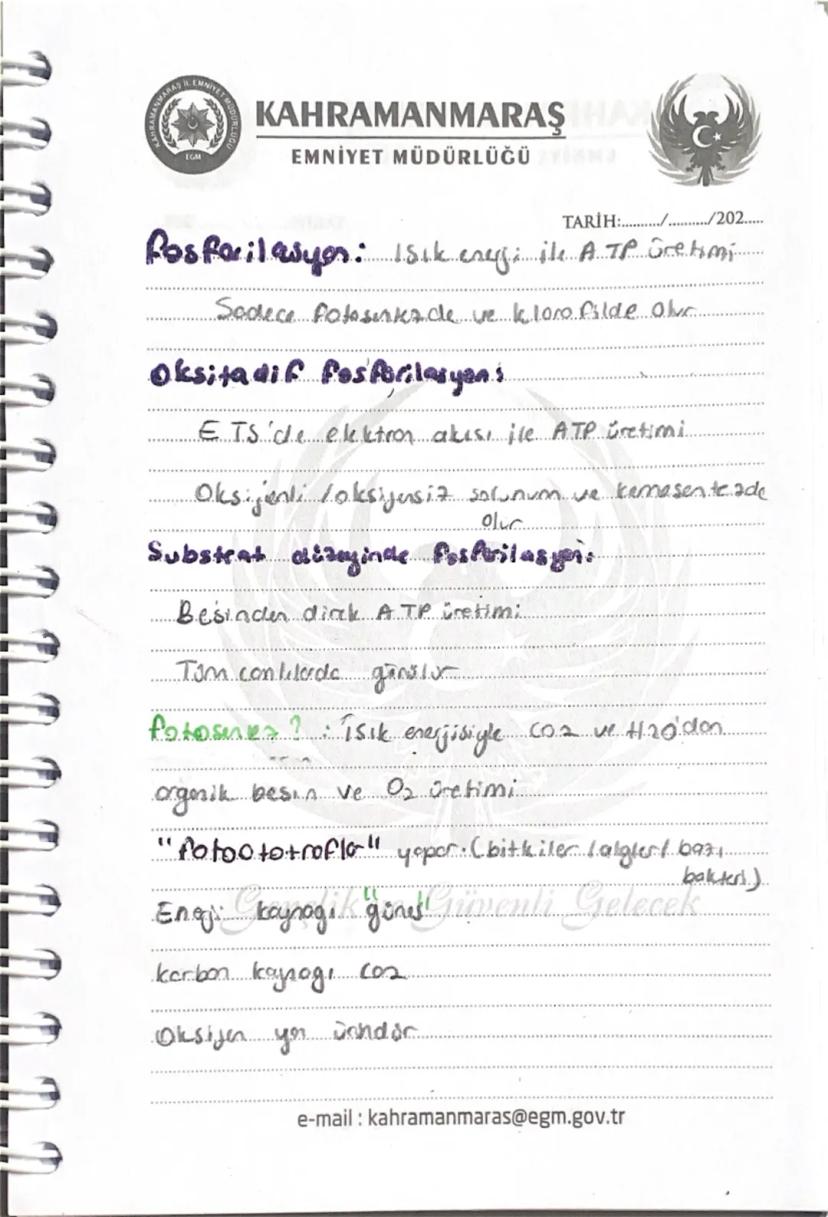 KAHRAMANMARAŞ İL EMNİYET MÜDÜRLÜĞÜ
EGM
KAHRAMANMARAŞ
EMNİYET MÜDÜRLÜĞÜ
TARİH:........./........./202.....
Fosforilasyon: Işık enerji ile ATP üretimi
Sadece fotosentezde ve klorofilde olur
Oksitadif fosforilasyon:
ETS'de elektron akışı ile ATP üretimi
Oksijenli / oksijensiz solunum ve kemosentezde
olur
Substrat düzeyinde fosforilasyon:
Besinden direk ATP üretimi
Tüm canlılarda görülür
fotosentez? : Işık enerjisiyle CO2 ve H2O'dan
organik besin ve O2 üretimi
"fotoototrofla" yapar. (bitkiler / algler / bazı
bakteri)
Enerji kaynağı "güneş"
karbon kaynağı CO2
Oksijen yan üründür
Gençlik Güvenli Gelecek
e-mail : kahramanmaras@egm.gov.tr